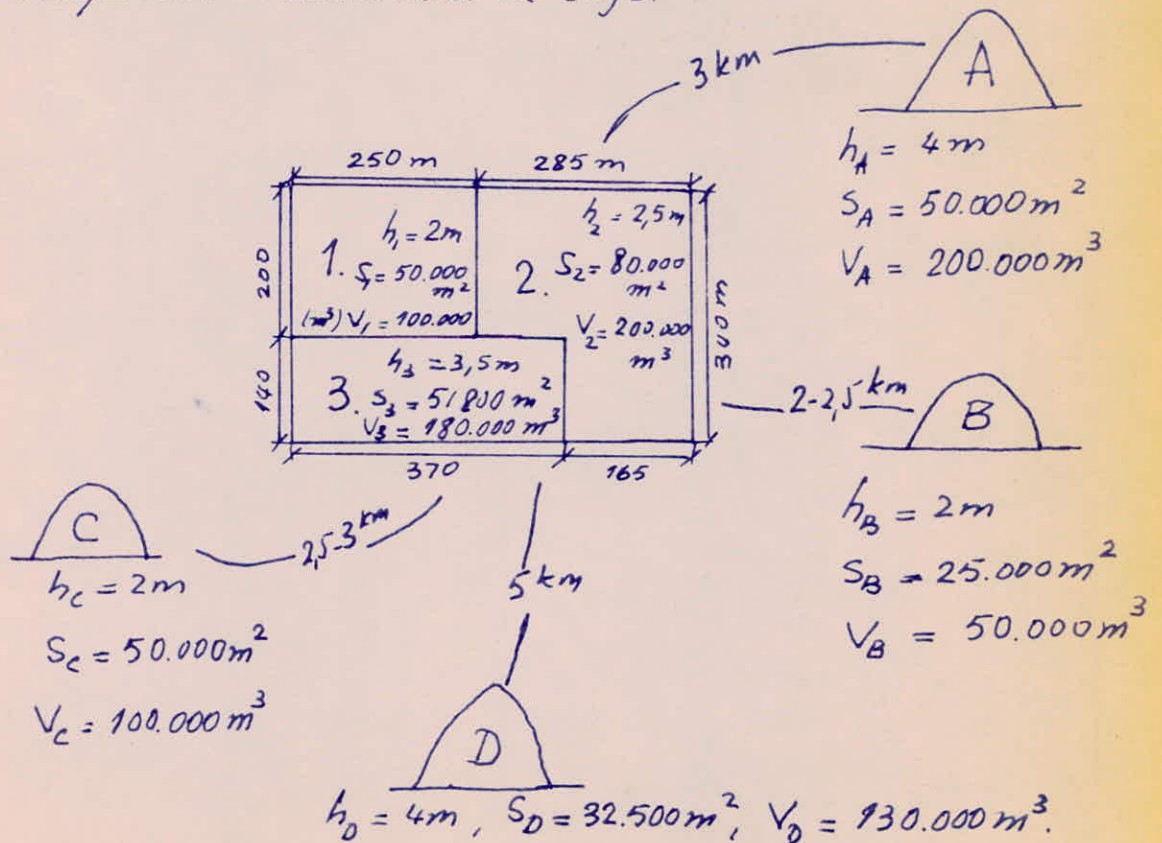 3 km
A
h_A = 4 m
S_A = 50.000 m²
V_A = 200.000 m³
250 m
285 m
200
140
1.
h₁ = 2 m
S₁ = 50.000 m²
(m³) V₁ = 100.000
2.
h₂ = 2,5 m
S₂ = 80.000 m²
V₂ = 200.000 m³
300 m
3.
h₃ = 3,5 m
S₃ = 51800 m²
V₃ = 180.000 m³
370
165
2-2,5 km
B
h_B = 2 m
S_B = 25.000 m²
V_B = 50.000 m³
C
2,5-3 km
h_C = 2 m
S_C = 50.000 m²
V_C = 100.000 m³
5 km
D
h_D = 4 m, S_D = 32.500 m², V_D = 130.000 m³.